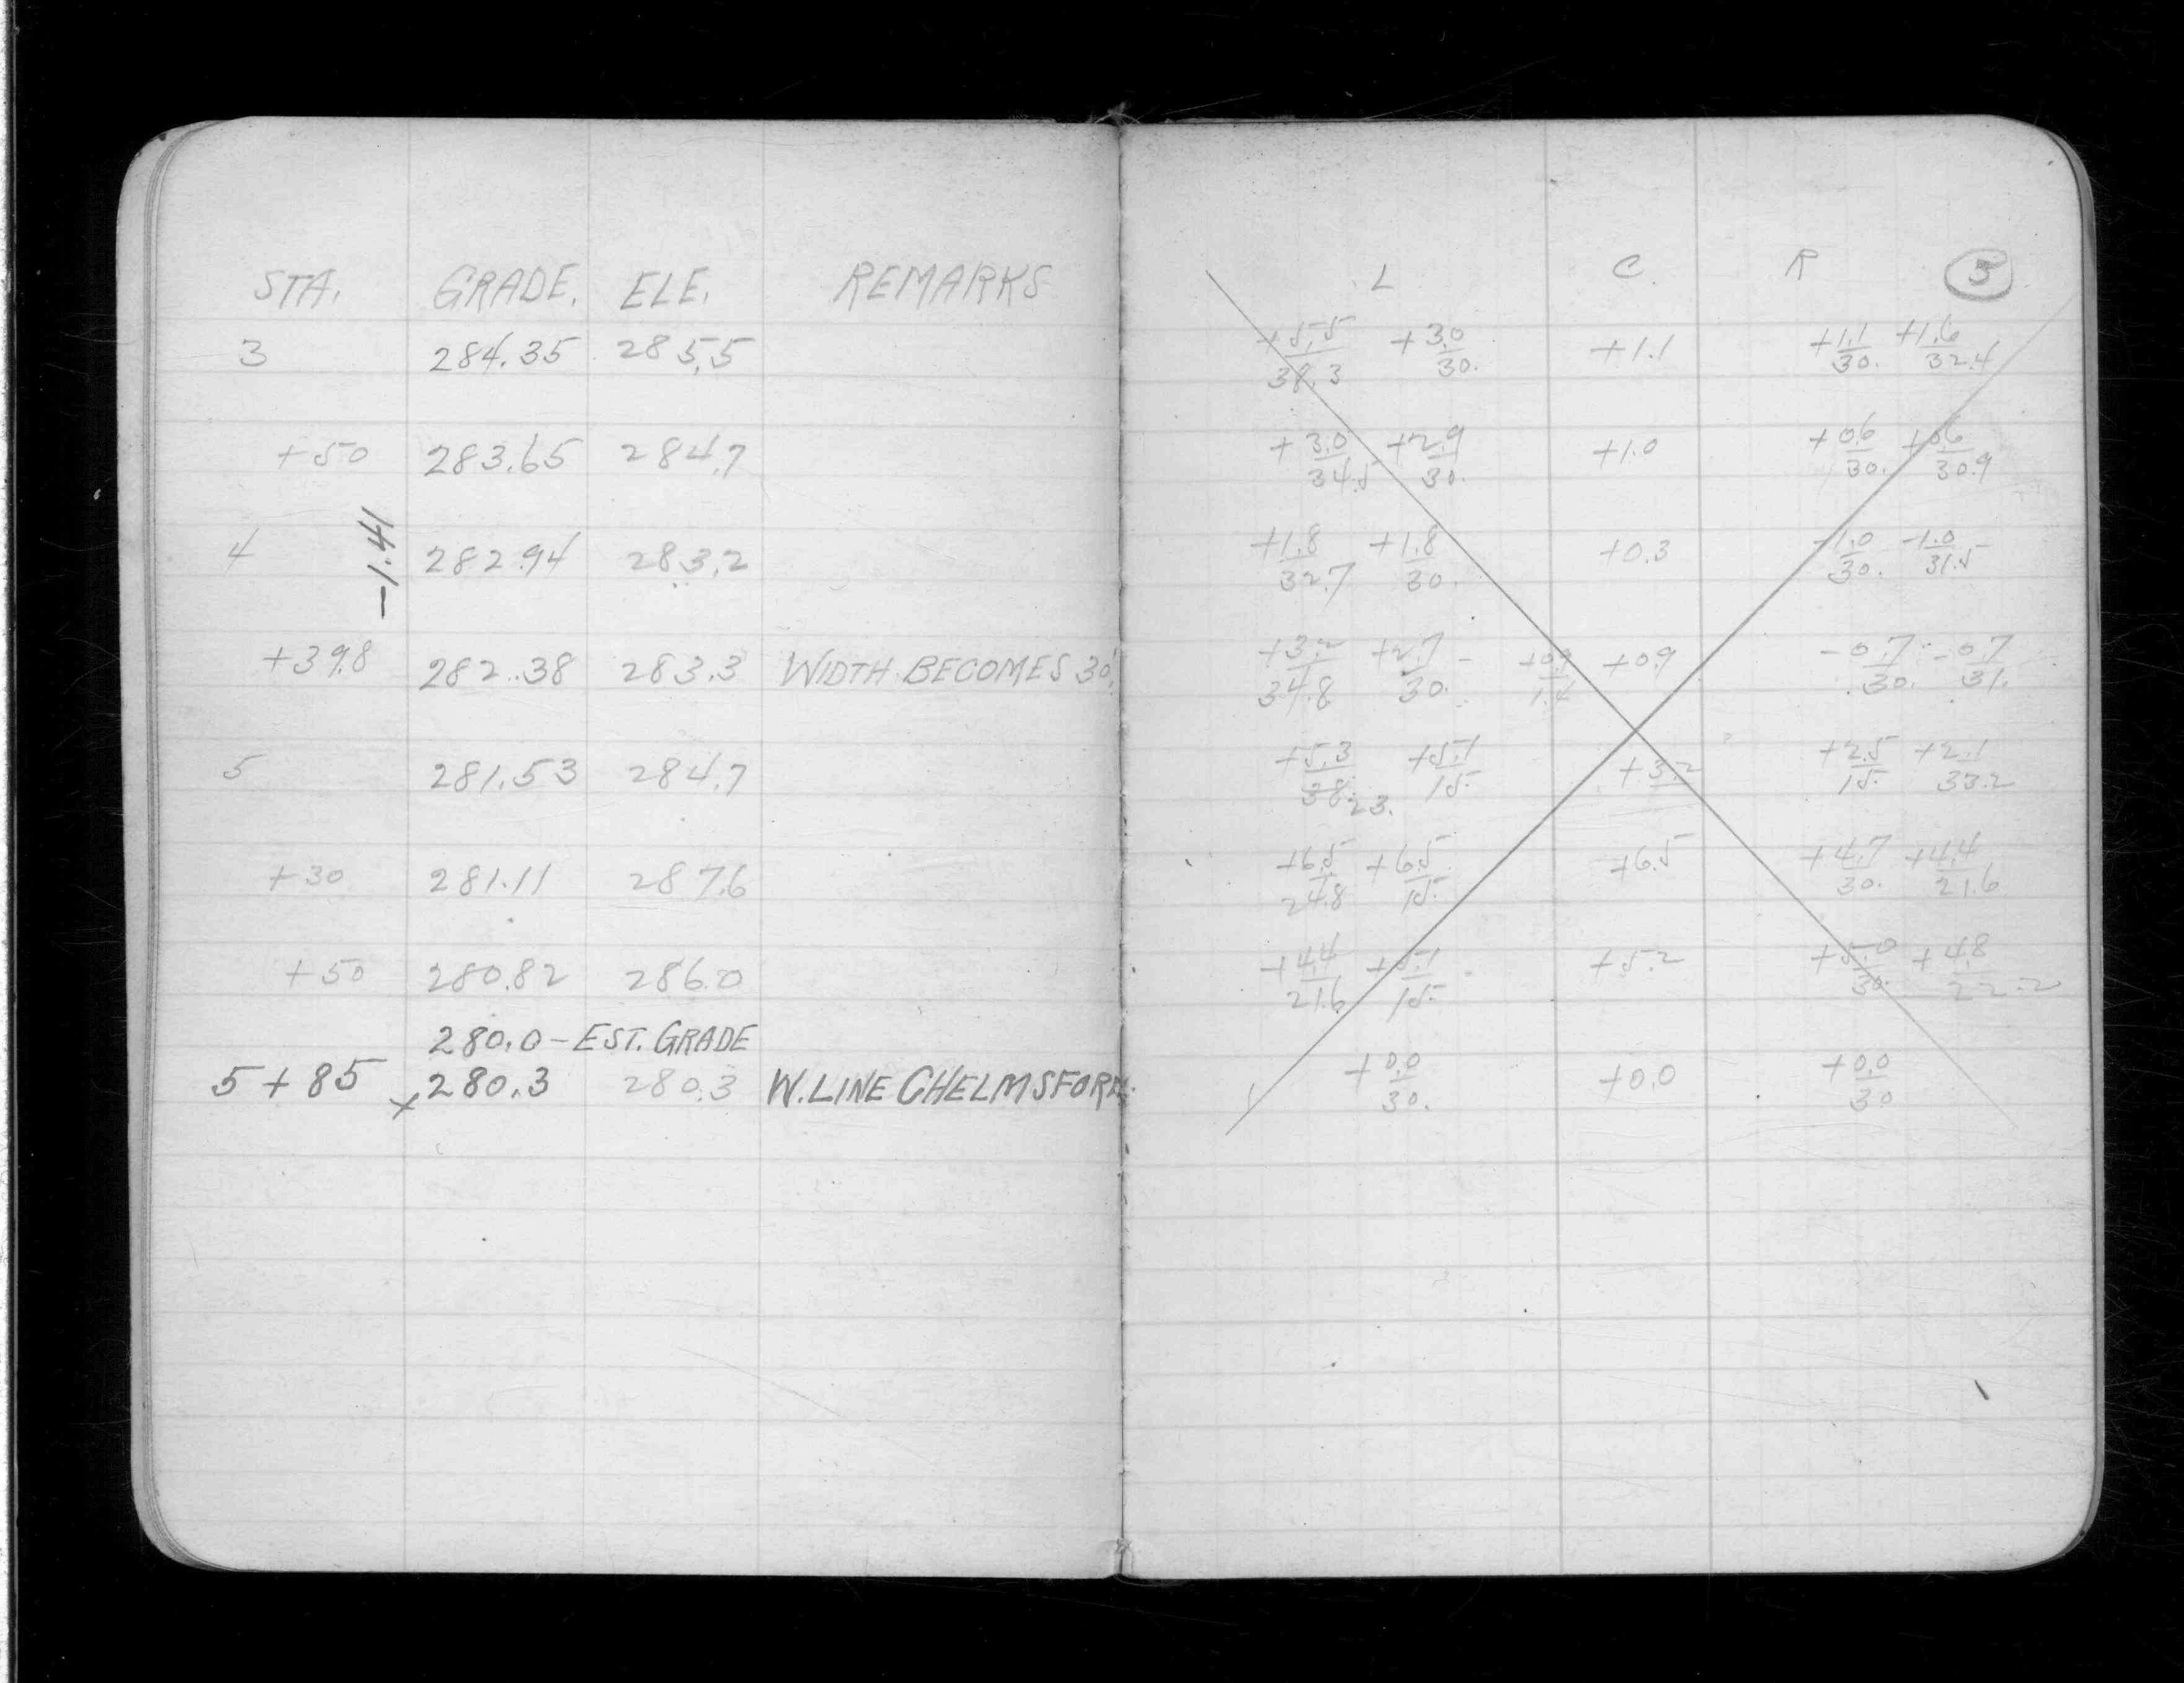 STA. GRADE. ELE. REMARKS
3 284.35 285.5
+50 283.65 284.7
-1.41
4 282.94 283.2
+39.8 282.38 283.3 WIDTH BECOMES 30'
5 281.53 284.7
+30 281.11 287.6
+50 280.82 286.0
280.0 - EST. GRADE
5+85 x 280.3 280.3 W. LINE CHELMSFORD.
L C. R 5
+5.5/38.3 +3.0/30. +1.1 +1.1/30. +1.6/32.4
+3.0/34.5 +2.9/30. +1.0 +0.6/30. +0.6/30.9
+1.8/32.7 +1.8/30. +0.3 -1.0/30. -1.0/31.5
+3.2/34.8 +2.7/30. +0.9 +0.9 -0.7/30. -0.7/31.
+5.3/38. 23. +5.1/15. +3.2 +2.5/15. +2.1/33.2
+6.5/24.8 +6.5/15. +6.5 +4.7/30. +4.4/21.6
+4.4/21.6 +5.1/15. +5.2 +5.0/30. +4.8/22.2
+0.0/30. +0.0 +0.0/30